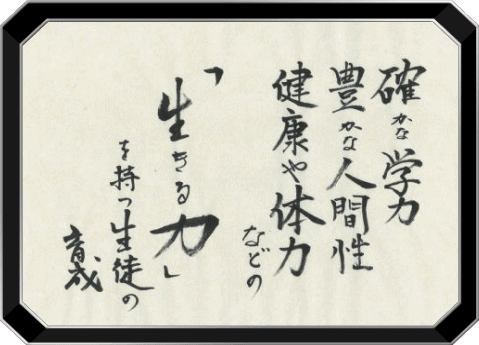 確かな学力
豊かな人間性
健康や体力
などの
「生きる力」
を持つ生徒の
育成